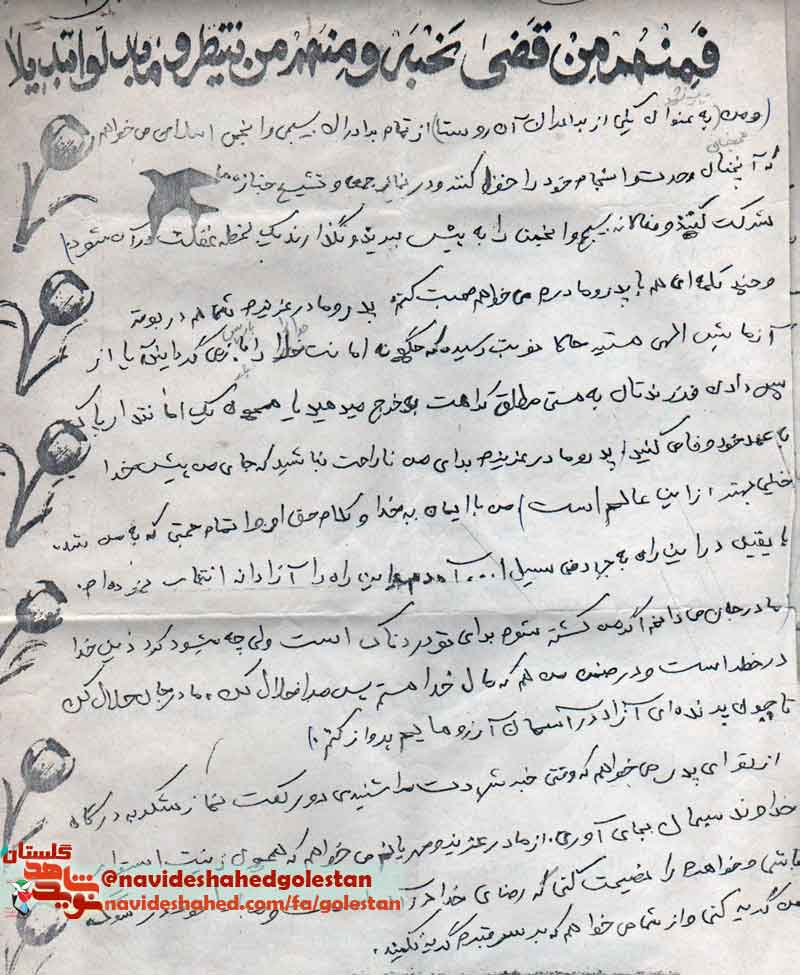 فَمِنْهُمْ مَنْ قَضیٰ نَحْبَهُ وَمِنْهُمْ مَنْ یَنْتَظِرُ وَ مَا بَدَّلُوا تَبْدِیلًا
(و من (به عنوان یکی از برادران آن روستا) از تمام برادران بسیجی و انجمن اسلامی می خواهم
که آنچنان وحدت و انسجام خود را حفظ کنند و در نماز جمعه و تشییع جنازه ها
شرکت کنید و فعالانه بسیج و انجمن را به پیش ببرید و نگذارند یک لحظه غفلت در آن شود)
و چند کلمه ای هم با پدر و مادرم می خواهم صحبت کنم پدر و مادر عزیزم شما هم در بوته
آزمایش الهی هستید حالا نوبت رسیده که چگونه امانت خدا را باز می گردانید آیا از
پس دادن فرزندتان به هستی مطلق کراهت به خرج میدهید یا همچون یک امانتدار پاک
با عهد خود وفا می کنید / پدر و مادر عزیزم برای من ناراحت نباشید که جای من پیش خدا
خیلی بهتر از این عالم است) من با ایمان به خدا و کلام حق او و اتمام حجتی که به من شد
با یقین در این راه به جهاد فی سبیل ا... آمدم و این راه را آزادانه انتخاب نموده ام.
(مادر جان می دانم اگر من کشته شوم برای تو دردناک است ولی چه میشود کرد دین خدا
در خطر است و در ضمن من هم که مال خدا هستم پس مرا حلال کن، مادر جان حلال کن
تا چون پرنده ای آزاد در آسمان آرزوهایم پرواز کنم.)
از تو ای پدر می خواهم که وقتی خبر شهادت مرا شنیدی دو رکعت نماز شکر به درگاه
خداوند سبحان بجای آوری. از مادر عزیز و مهربانم می خواهم که همچون زینب استوار
باشی و خواهرم را نصیحت کنی که رضای خدا در
من گریه کنی و از شما می خواهم که بر سر قبرم گریه نکنید.
نوید شاهد گلستان
@navideshahedgolestan
navideshahed.com/fa/golestan